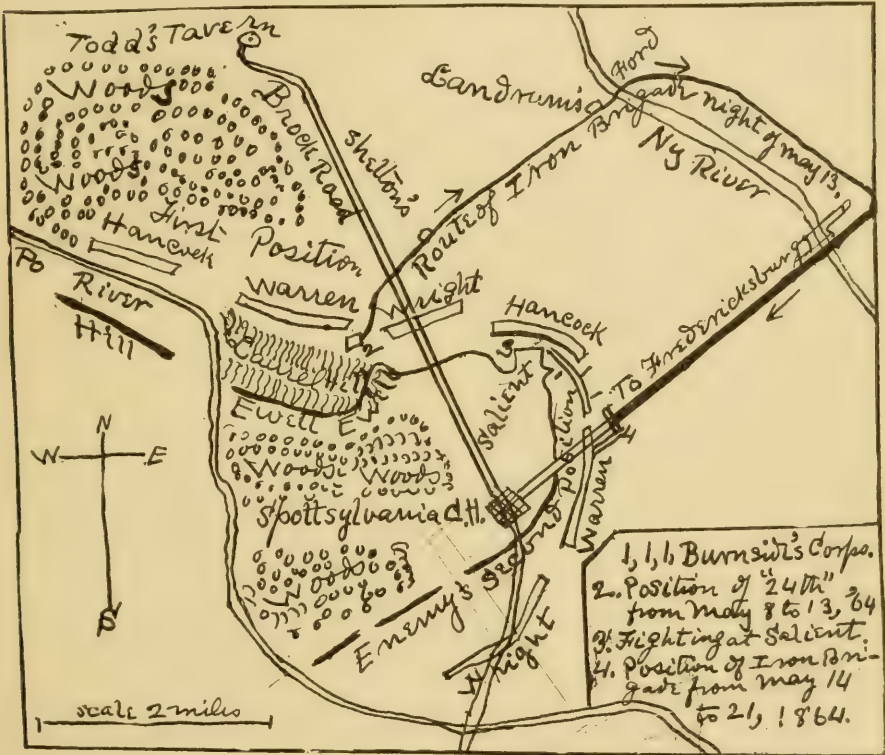 Todd's Tavern
Woods
Woods
Brock Road
Shelton's
Landrum's
Ford
Route of Iron Brigade night of may 13,
Ny River
First
Position
Hancock
Po River
Hill
Warren
Wright
Hancock
Laurel Hill
2
Ewell
Salient
3
To Fredericksburg
4
N
W E
S
Woods Woods
Spottsylvania C.H.
Warren
Woods
Enemy's Second Position
Wright
scale 2 miles
1, 1, 1, Burnside's Corps.
2. Position of "24th"
from May 8 to 13, '64
3. Fighting at Salient.
4. Position of Iron Bri-
gade from May 14
to 21, 1864.